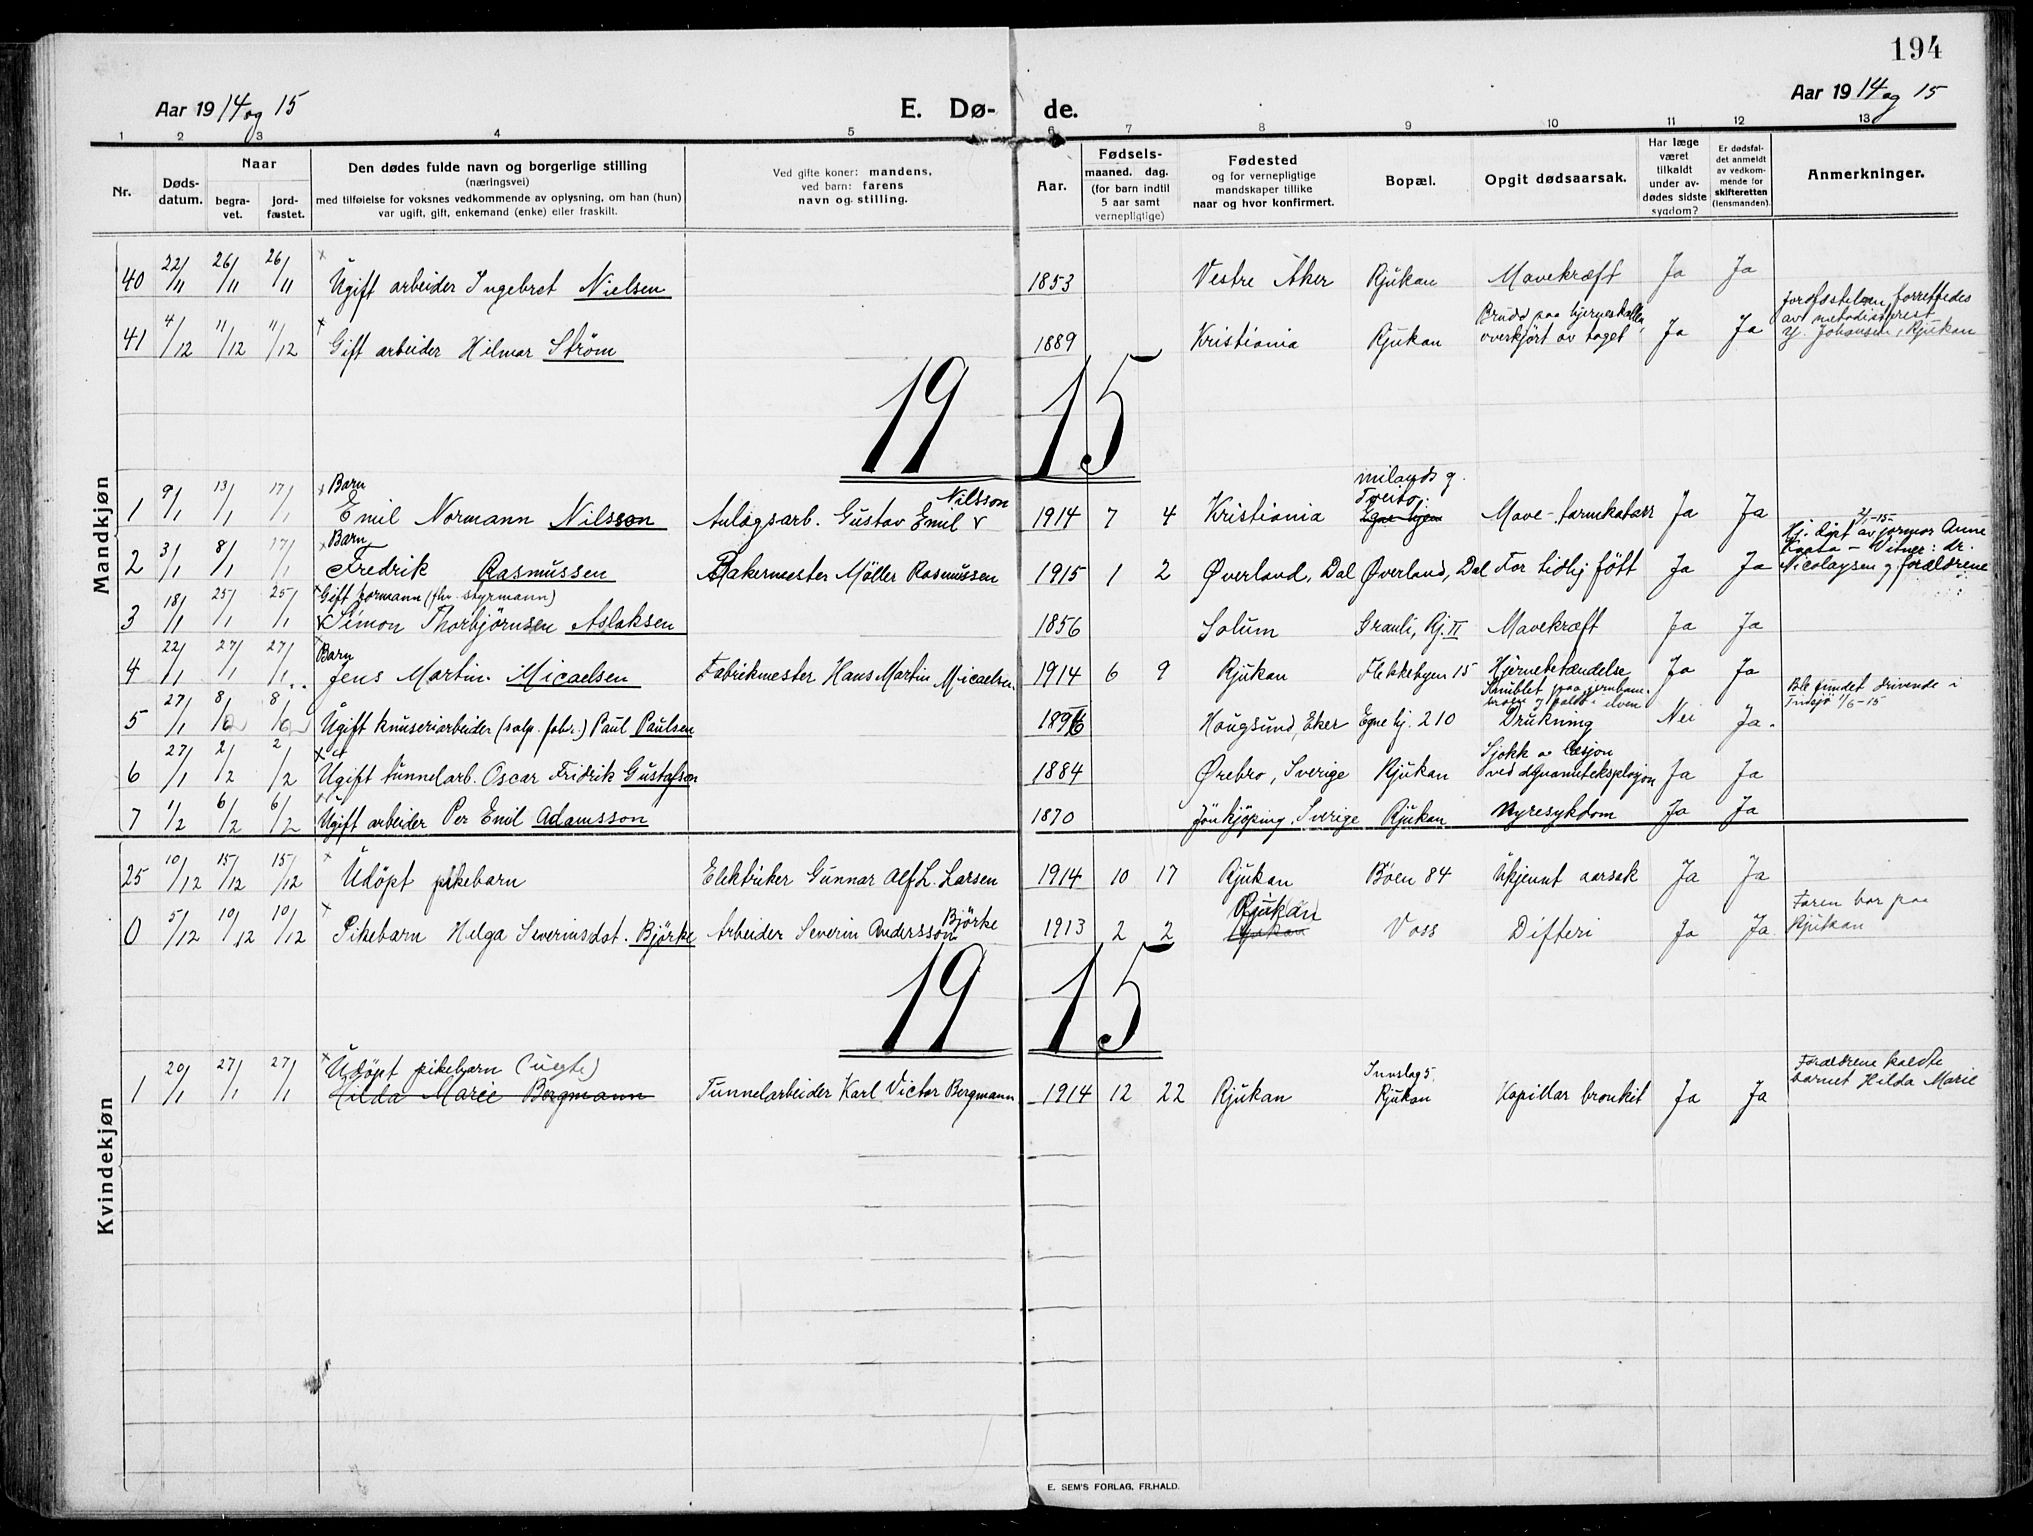 194
Aar 1914 og 15
E. Dø- de.
Aar 1914 og 15
1 2 3 4 5 6 7 8 9 10 11 12 13
Nr.
Døds-
datum.
Naar
begra-
vet.
jord-
fæstet.
Den dødes fulde navn og borgerlige stilling
(næringsvei)
med tilføielse for voksnes vedkommende av oplysning, om han (hun)
var ugift, gift, enkemand (enke) eller fraskilt.
Ved gifte koner: mandens,
ved barn: farens
navn og stilling.
Aar.
Fødsels-
maaned. dag.
(for barn indtil
5 aar samt
vernepligtige)
Fødested
og for vernepligtige
mandskaper tillike
naar og hvor konfirmert.
Bopæl.
Opgit dødsaarsak.
Har læge
været
tilkaldt
under av-
dødes sidste
sygdom?
Er dødsfal-
det anmeldt
av vedkom-
mende for
skifteretten
(lensmanden).
Anmerkninger.
Mandkjøn
40 22/11 26/11 26/11 × Ugift arbeider Ingebret Nielsen 1853 Vestre Aker Rjukan Mavekræft Ja Ja
41 4/12 11/12 11/12 × Gift arbeider Hilmar Strøm 1889 Kristiania Rjukan Brudd paa hjerneskallen,
overkjørt av toget Ja Ja Jordfæstelsen forrettedes
av metodistprest
Johansen, Rjukan
19 15
1 9/1 13/1 17/1 × Barn
Emil Normann Nilsson Anlægsarb. Gustav Emil Nilsson 1914 7 4 Kristiania Milands g.
Tveito
Egne hjem Mave-tarmkatarr Ja Ja
2 3/1 8/1 17/1 × Barn
Fredrik Rasmussen Bakermester Møller Rasmussen 1915 1 2 Øverland, Dal Øverland, Dal For tidlig født Ja Ja Hj. døpt 2/1-15 av jormor Anne
Kaata - Vitner: dr.
Nicolaysen og forældrene
3 18/1 25/1 25/1 × Gift formann (fhv. styrmann)
Simon Thorbjørnsen Aslaksen 1856 Solum Grauli, Rj. II Mavekræft Ja Ja
4 22/1 27/1 27/1 × Barn
Jens Martin Micaelsen Fabrikmester Hans Martin Micaelsen 1914 6 9 Rjukan Flekkebyen 15 Hjernebetændelse Ja Ja
5 27/1 8/6 8/6 Ugift knuseriarbeider (salp. fabr.) Paul Paulsen 1896 Hougsund, Eker Egne hj. 210 Snublet paa jernbane-
broen og faldt i elven
Drukning Nei Ja. Ble fundet drivende i
Tinsjø 1/6-15
6 27/1 2/2 2/2 × Ugift tunnelarb. Oscar Fridrik Gustafson 1884 Ørebro, Sverige Rjukan Sjokk og læsjon
ved dynamiteksplosjon Ja Ja
7 1/2 6/2 6/2 Ugift arbeider Per Emil Adamsson 1870 Jönkjöping, Sverige Rjukan Nyresykdom Ja Ja
Kvindekjøn
25 10/12 15/12 15/12 × Udöpt pikebarn Elektriker Gunnar Alf L. Larsen 1914 10 17 Rjukan Bøen 84 Ukjennt aarsak Ja Ja
0 5/12 10/12 10/12 × Pikebarn Helga Severinsdat. Björke Arbeider Severin Andersson Björke 1913 2 2 Rjukan
Rjukan Voss Difteri Ja Ja Faren bor paa
Rjukan
19 15
1 20/1 27/1 27/1 × Udöpt pikebarn (uegte)
Hilda Marie Bergmann Tunnelarbeider Karl Victor Bergmann 1914 12 22 Rjukan Innslag 5
Rjukan Kapillar bronkit Ja Ja Forældrene kaldte
barnet Hilda Marie
E. SEM'S FORLAG, FR.HALD.